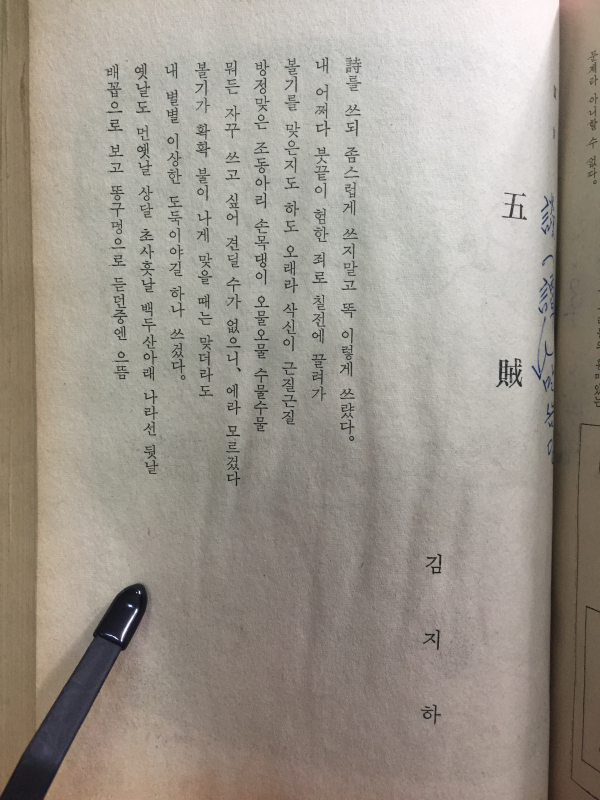 五 賊
김 지 하
詩를 쓰되 좀스럽게 쓰지말고 똑 이렇게 쓰럈다.
내 어쩌다 붓끝이 험한 죄로 칠전에 끌려가
볼기를 맞은지도 하도 오래라 삭신이 근질근질
방정맞은 조동아리 손목댕이 오물오물 수물수물
뭐든 자꾸 쓰고 싶어 견딜 수가 없으니, 에라 모르겄다
볼기가 확확 불이 나게 맞을 때는 맞더라도
내 별별 이상한 도둑이야길 하나 쓰겄다.
옛날도 먼옛날 상달 초사흣날 백두산아래 나라선 뒷날
배꼽으로 보고 똥구멍으로 듣던중엔 으뜸
문제라 아니할 수 없다.